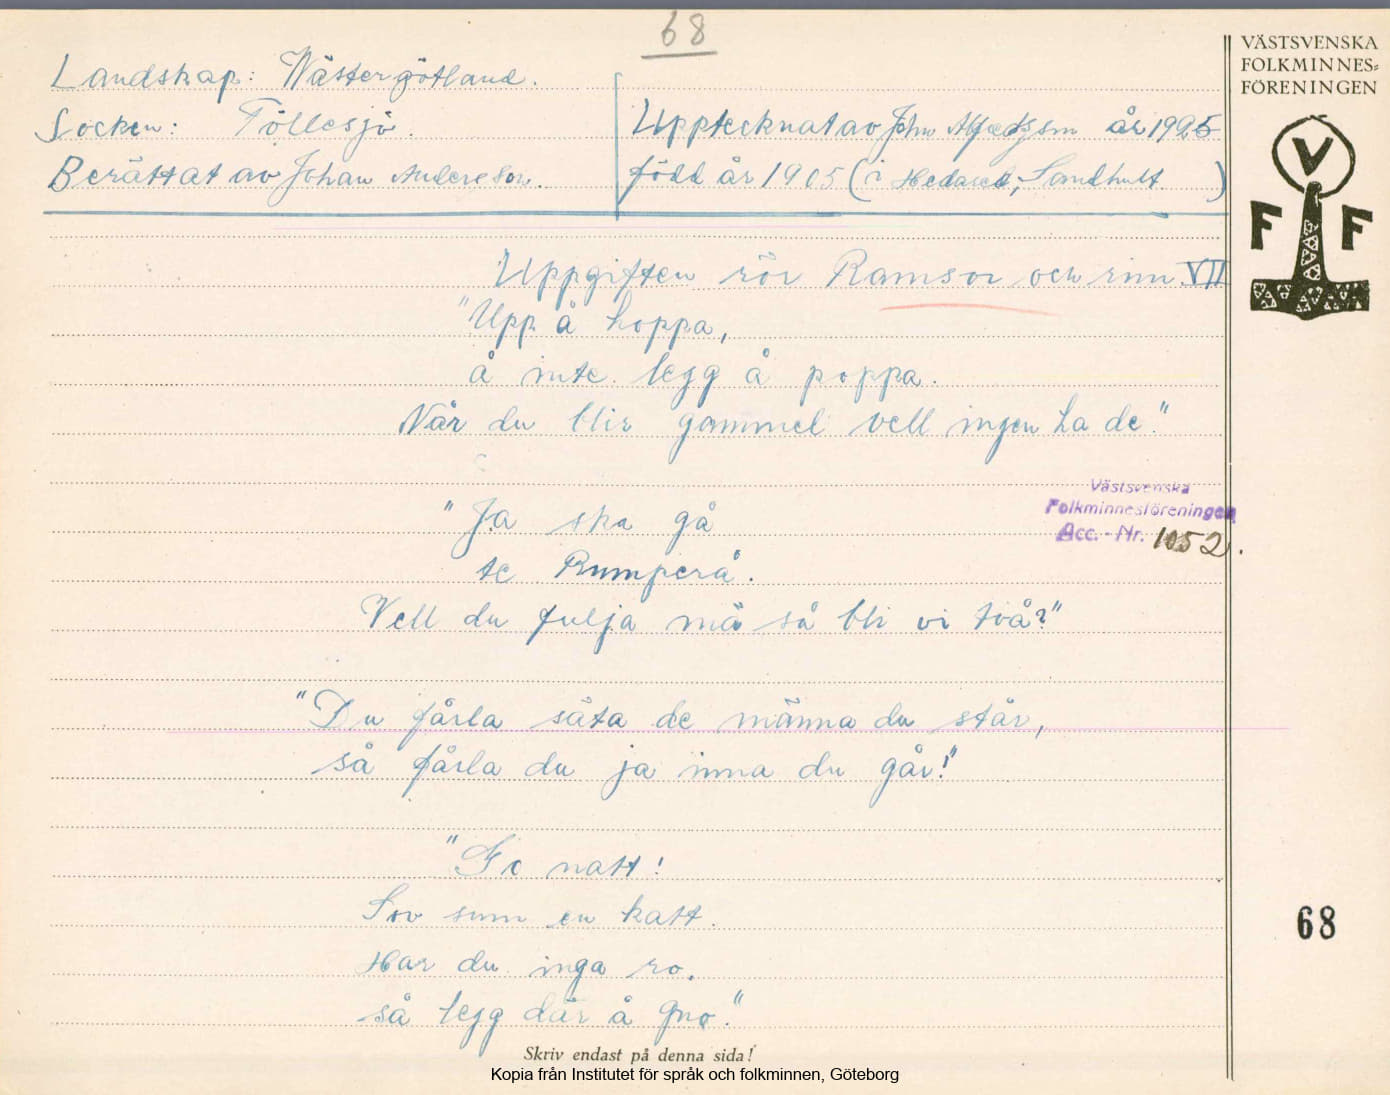 68
Landskap: Västergötland.
Socken: Töllesjö.
Berättat av Johan Andersson.
Upptecknat av John år 1925
född år 1905 (i Hedared, Sandhult )
VÄSTSVENSKA
FOLKMINNES=
FÖRENINGEN
V
F F
Uppgiften rör Ramsor och rim VII
"Upp å hoppa,
å inte legg å poppa.
När du blir gammel vell ingen ha de."
Västsvenska
Folkminnesföreningen
Acc. - Nr. 1052.
"Ja ska gå
te Rumperå.
Vell du fulja mä så bli vi två?"
"Du fårla säta de männa du står,
så fårla du ja inna du går!"
"Go natt!
Sov sum en katt.
Har du inga ro,
så legg där å gno."
68
Skriv endast på denna sida!
Kopia från Institutet för språk och folkminnen, Göteborg